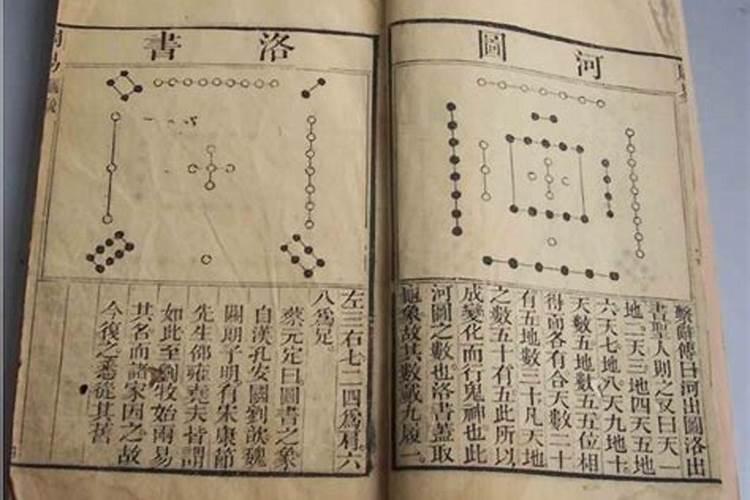 河圖
繫辭傳曰河出圖洛出
書聖人則之又曰天一
地二天三地四天五地
六天七地八天九地十
天數五地數五五位相
得而各有合天數二十
有五地數三十凡天地
之數五十有五此所以
成變化而行鬼神也此
河圖之數也洛書蓋取
龜象故其數戴九履一。
洛書
左三右七二四爲肩。六
八爲足。
蔡元定曰。圖書之象
自漢孔安國劉歆魏
關朗子明。有宋康節
先生邵雍堯夫皆謂
如此。至劉牧始兩易
其名。而諸家因之。故
今復之。悉從其舊